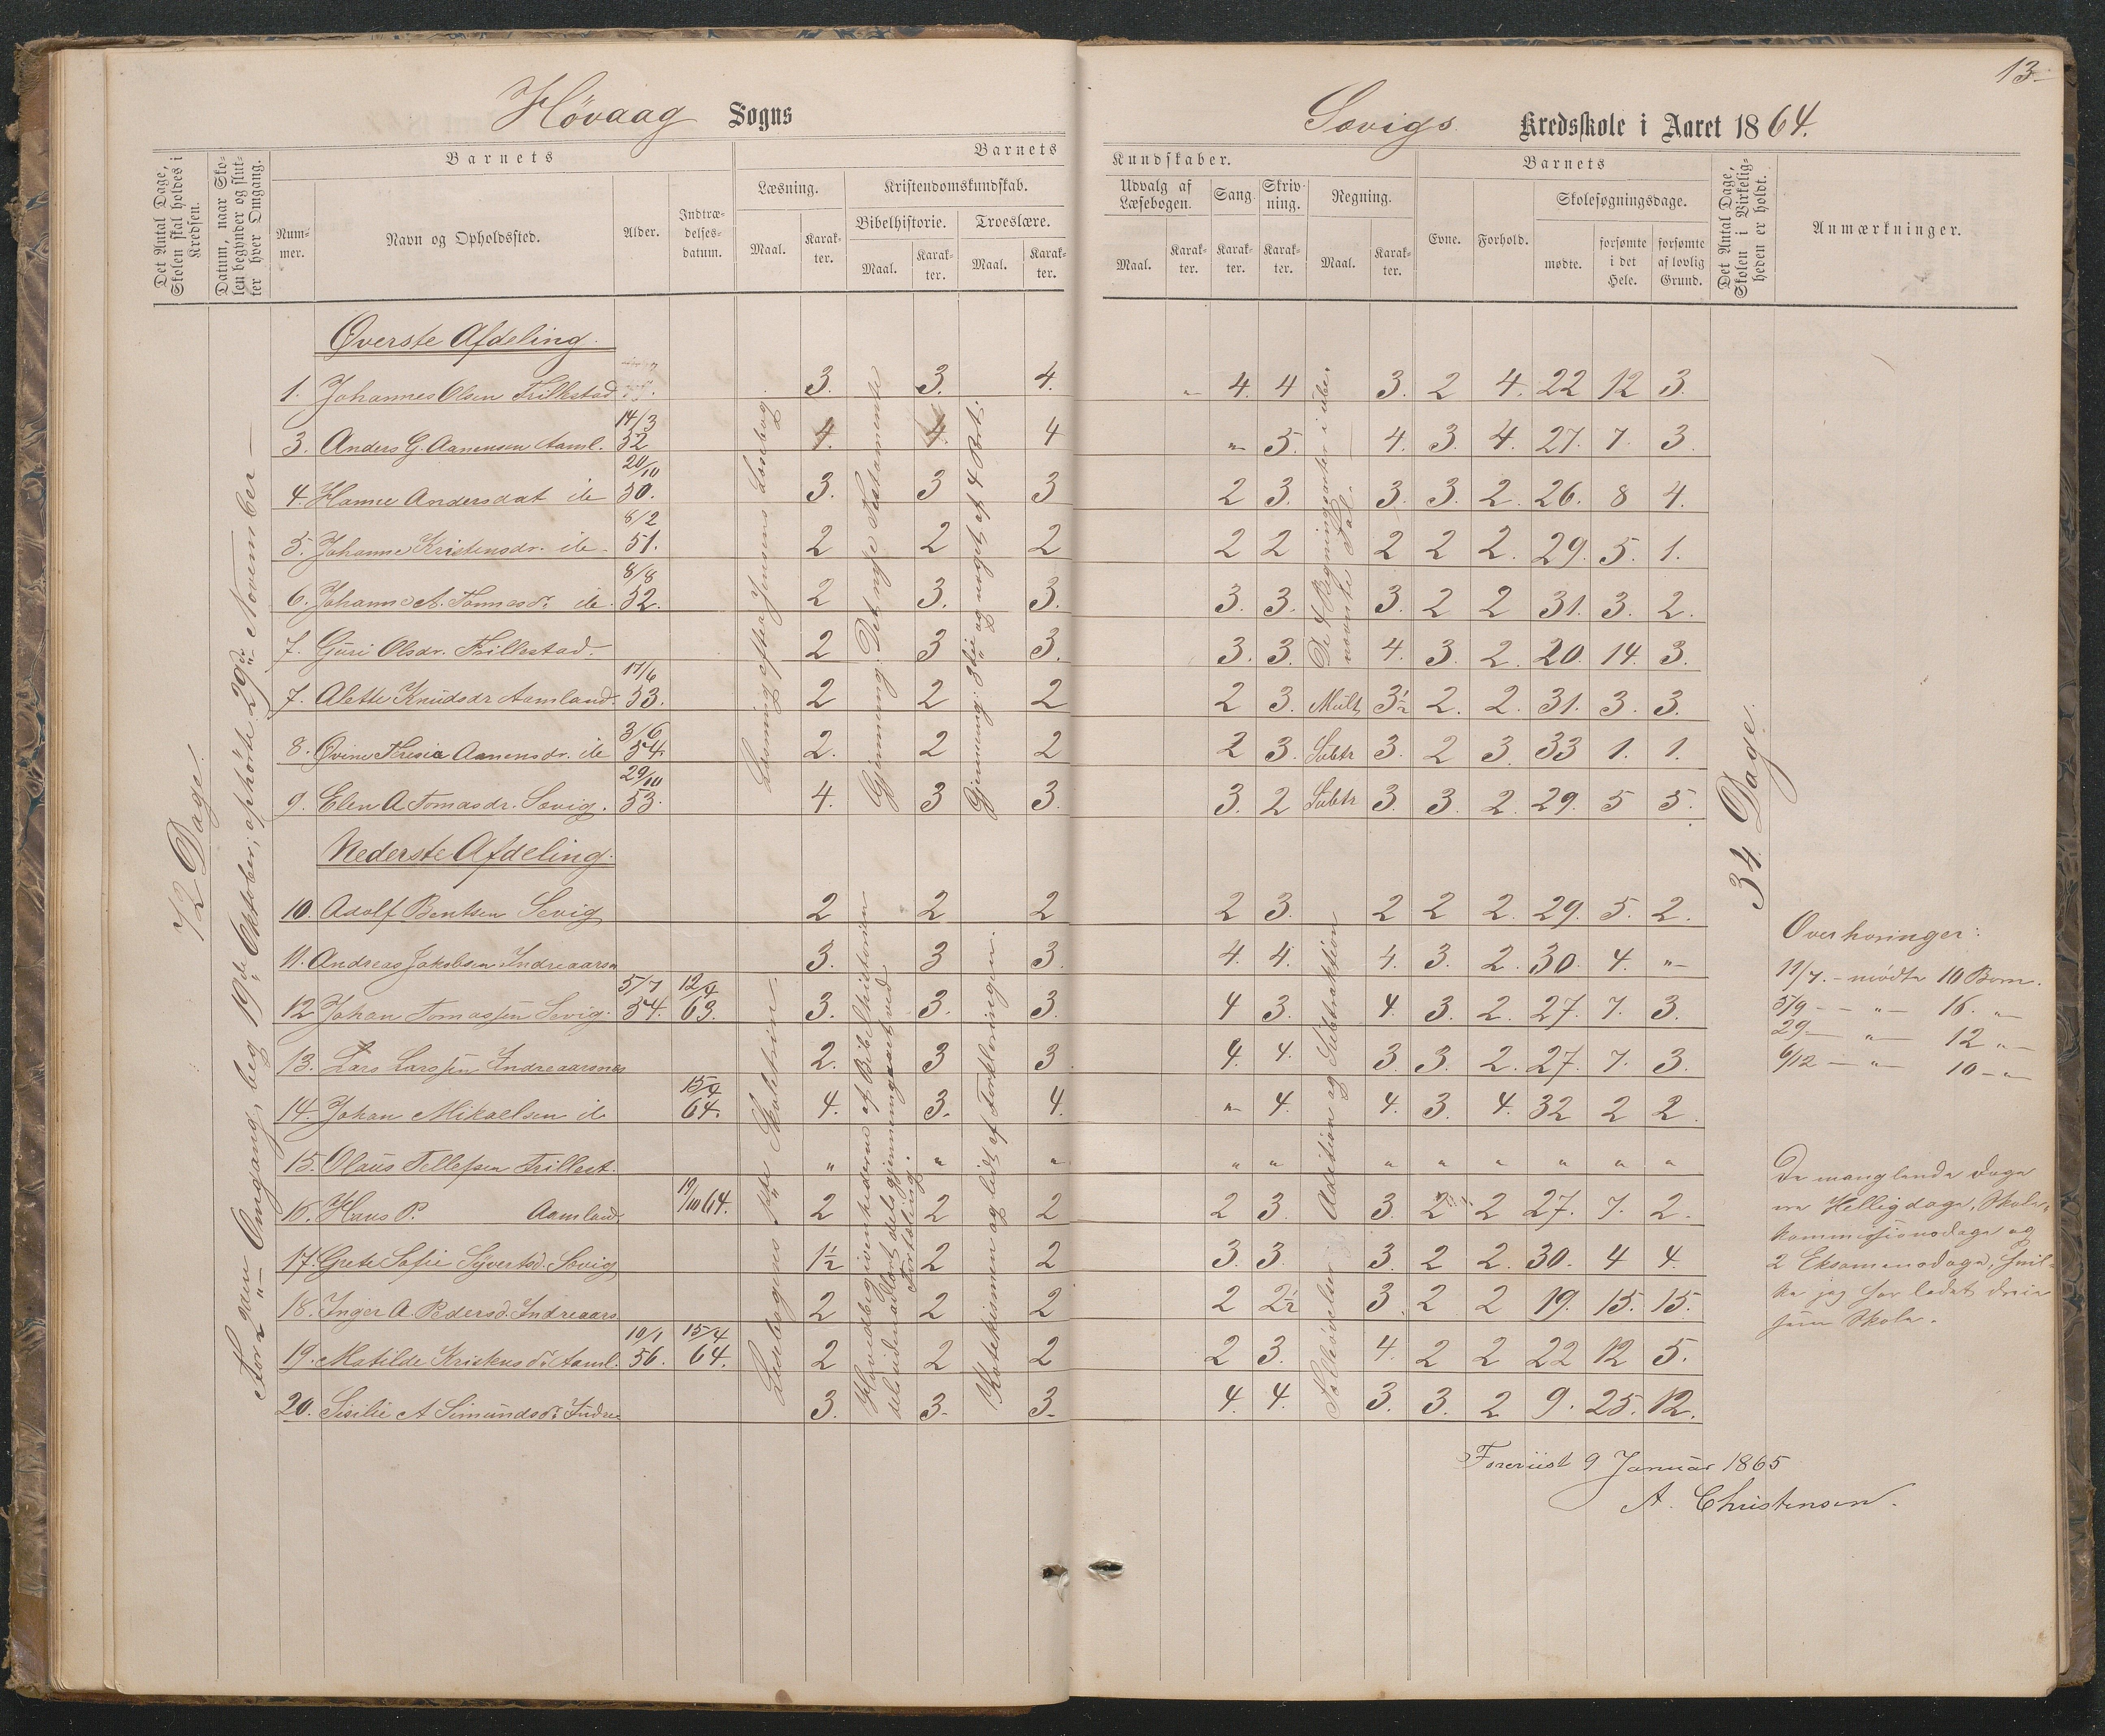 13
Høvaag Sogns
Sævigs Kredsskole i Aaret 1864.
Det Antal Dage, Skolen skal holdes i Kredsen.
Datum, naar Skolen begynder og slutter hver Omgang.
Barnets
Nummer.
Navn og Opholdssted.
Alder.
Indtrædelsesdatum.
Barnets Kundskaber.
Læsning.
Maal.
Karakter.
Kristendomskundskab.
Bibelhistorie.
Maal.
Karakter.
Troeslære.
Maal.
Karakter.
Udvalg af Læsebogen.
Maal.
Karakter.
Sang.
Karakter.
Skrivning.
Karakter.
Regning.
Maal.
Karakter.
Barnets
Evne.
Forhold.
Skolesøgningsdage.
mødte.
forsømte i det Hele.
forsømte af lovlig Grund.
Det Antal Dage, Skolen i Virkeligheden er holdt.
Anmærkninger.
72 Dage.
For 2den Omgang, beg 19de Oktober, ophørte 29de November
Øverste Afdeling.
1. Johannes Olsen Trillestad 3. 3. 4. " 4. 4 3. 2 4. 22 12 3.
3. Anders G. Aanensen Aaml. 14/3 52 4. 4. 4 " 5. 4. 3. 4. 27. 7. 3
4. Hanne Andersdat de 20/10 50. 3. 3 3 2 3. 3. 3. 2. 26. 8 4.
5. Johanne Kristensdr. de 8/2 51. 2 2 2 2 2 2 2 2. 29. 5. 1.
6. Johanne A. Tomasdr. de 8/8 52. 2 3. 3. 3. 3. 3. 2 2 31. 3. 2.
7. Guri Olsdr. Trillestad. 2 3 3. 3. 3. 4. 3. 2. 20. 14. 3.
7. Alette Knudsdr Aamland. 17/6 53. 2 2 2 2 3. Mult 3½ 2. 2. 31. 3. 3.
8. Øvine Tresia Aanensdr. de 3/6 54. 2. 2 2 2 3. Subtr 3. 2 3. 33 1. 1.
9. Elen A Tomasdr. Sævig. 29/10 53. 4. 3 3. 3. 2 Subtr 3. 3. 2. 29. 5 5.
Læsning efter Jensens Læsebog
Gjennemg. Det nye Testamente
Gjennemg. 3die og noget af 4 Part.
De 4 Regningsarter i ube-
nævnte Tal.
34 Dage.
Nederste Afdeling.
10. Adolf Bentsen Sevig 2 2 2 2 3. 2 2 2. 29. 5. 2.
11. Andreas Jakobsen Indreaarsn 3. 3 3. 4. 4. 4. 3. 2. 30. 4. "
12 Johan Tomassen Sevig. 5/7 54. 12/4 63. 3. 3. 3. 4 3. 4. 3. 2. 27. 7. 3.
13. Lars Larssen Indreaarsnes 2. 3 3 4. 4. 3. 3. 2. 27. 7. 3.
14. Johan Mikaelsen de 64. 4. 3. 4. " 4. 4. 3. 4. 32 2 2.
15. Olaus Tellefsen Trillest. " " " " " " " " " " "
16. Hans P. Aamland 19/10 64. 2 2 2 2 3. 3. 2 2 27. 7. 2.
17. Grete Sofie Syvertsd. Sævig 1½ 2 2 3. 3. 3. 2 2. 30. 4 4.
18. Inger A. Pedersd. Indreaars 2 2 2 2 2½ 3. 2 2 19. 15. 15.
19. Matilde Kristensdr Aaml. 10/1 56. 15/4 64. 2 2 2 2 3. 4. 2 2 22 12 5.
20. Sisilie A Simundsdr Indre 3. 3. 3. 4. 4. 3. 3. 2 9. 25. 12.
Hovedbegivenhederne af Bibelhistorien
Katekismen og lidt af Forklaringen.
Addition og Subtraktion
Overhøringer:
11/7. mødte 10 Børn.
5/9 — " — 16. "
29 — " — 12 "
6/12 — " — 10 — "
De manglende Dage
ere Helligdage, Skole-
kommissionsdage og
2 Eksamensdage, hvil-
ke jeg har ladet
som Skole.
Foreviist 9 Januar 1865
A. Christensen.